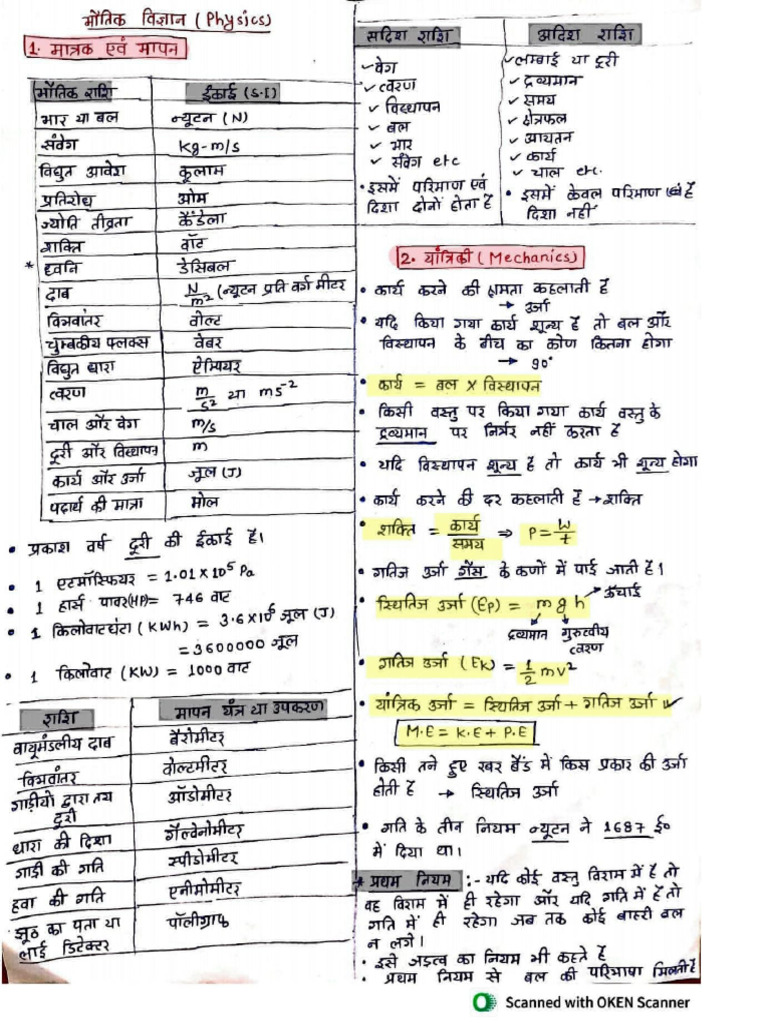 भौतिक विज्ञान (Physics)
1. मात्रक एवं मापन
भौतिक राशि ईकाई (S.I)
भार या बल न्यूटन (N)
संवेग Kg-m/s
विद्युत आवेश कूलाम
प्रतिरोध ओम
ज्योति तीव्रता कैंडेला
शक्ति वॉट
* ध्वनि डेसिबल
दाब N/m² (न्यूटन प्रति वर्ग मीटर
विभवांतर वोल्ट
चुम्बकीय फ्लक्स वेबर
विद्युत धारा ऐम्पियर
त्वरण m/s² या ms⁻²
चाल और वेग m/s
दूरी और विस्थापन m
कार्य और उर्जा जूल (J)
पदार्थ की मात्रा मोल
• प्रकाश वर्ष दूरी की ईकाई है।
• 1 एटमॉस्फियर = 1.01 X 10⁵ Pa
• 1 हार्स पावर(HP) = 746 वाट
• 1 किलोवाटघंटा (KWh) = 3.6X10⁶ जूल (J)
= 3600000 जूल
• 1 किलोवाट (KW) = 1000 वाट
राशि मापन यंत्र या उपकरण
वायुमंडलीय दाब बैरोमीटर
विभवांतर वोल्टमीटर
गाड़ीयो द्वारा तय दूरी ऑडोमीटर
धारा की दिशा गैल्वेनोमीटर
गाडी की गति स्पीडोमीटर
हवा की गति एनीमोमीटर
झूठ का पता या लाई डिटेक्टर पॉलीग्राफ
सदिश राशि अदिश राशि
✓ वेग ✓ लम्बाई या दूरी
✓ त्वरण ✓ द्रव्यमान
✓ विस्थापन ✓ समय
✓ बल ✓ क्षेत्रफल
✓ भार ✓ आयतन
✓ संवेग etc ✓ कार्य
✓ चाल etc.
• इसमें परिमाण एवं दिशा दोनों होता है
• इसमें केवल परिमाण है दिशा नहीं
2. यांत्रिकी (Mechanics)
• कार्य करने की क्षमता कहलाती है
→ उर्जा
• यदि किया गया कार्य शून्य है तो बल और
विस्थापन के बीच का कोण कितना होगा
→ 90°
• कार्य = बल X विस्थापन
• किसी वस्तु पर किया गया कार्य वस्तु के
द्रव्यमान पर निर्भर नहीं करता है
• यदि विस्थापन शून्य है तो कार्य भी शून्य होगा
• कार्य करने की दर कहलाती है → शक्ति
• शक्ति = कार्य/समय ⇒ P = W/t
• गतिज उर्जा गैस के कणों में पाई जाती है।
• स्थितिज उर्जा (Ep) = m g h → ऊँचाई
द्रव्यमान गुरुत्वीय
त्वरण
• गतिज उर्जा (EK) = 1/2 mv²
• यांत्रिक उर्जा = स्थितिज उर्जा + गतिज उर्जा
M.E = K.E + P.E
• किसी तने हुए रबर बैंड में किस प्रकार की उर्जा
होती है → स्थितिज उर्जा
• गति के तीन नियम न्यूटन ने 1687 ई०
में दिया था।
* प्रथम नियम :- यदि कोई वस्तु विराम में है तो
वह विराम में ही रहेगा और यदि गति में है तो
गति में ही रहेगा जब तक कोई बाहरी बल
न लगे।
• इसे जड़त्व का नियम भी कहते है
• प्रथम नियम से बल की परिभाषा मिलती है
Scanned with OKEN Scanner